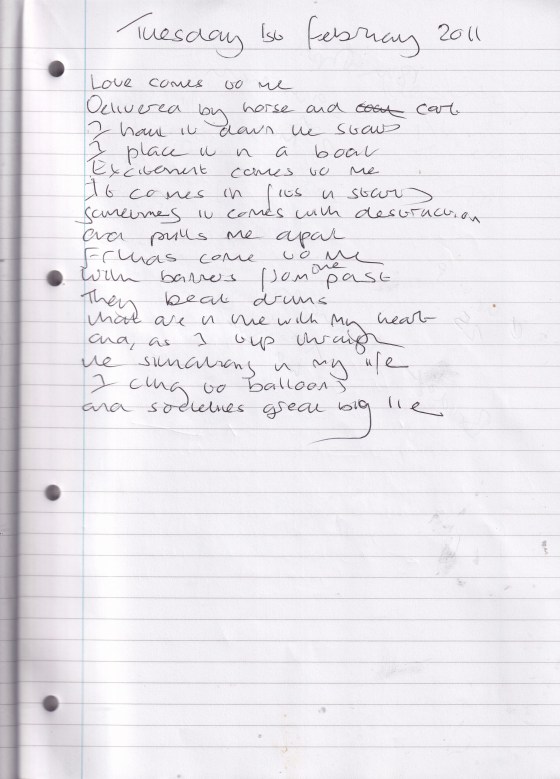 Tuesday 1st February 2011
Love comes to me
Delivered by horse and cart
I haul it down the stairs
I place it in a boat
Excitement comes to me
It comes in fits n starts
sometimes it comes with destruction
and pulls me apart
Friends come to me
With banners from the past
They beat drums
that are in time with my heart
and, as I trip through
the situations in my life
I cling to balloons
and societies great big lie